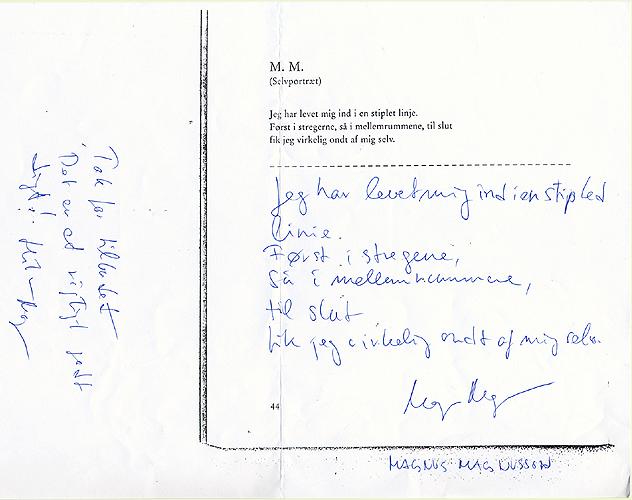 M. M.
(Selvportræt)
Jeg har levet mig ind i en stiplet linje.
Først i stregerne, så i mellemrummene, til slut
fik jeg virkelig ondt af mig selv.
Jeg har levet mig ind i en stiplet
linie.
Først i stregene,
så i mellemrummene,
til slut
fik jeg virkelig ondt af mig selv.
44
MAGNUS MAGNUSSON
Tak for tilbudet
Det er et rigtigt godt